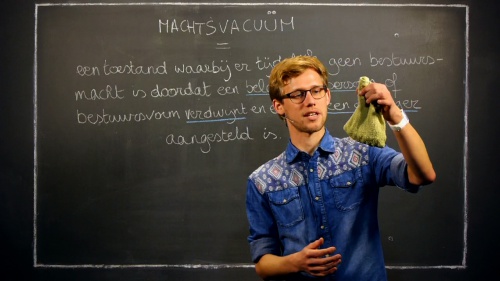 MACHTSVACUÜM
=
een toestand waarbij er geen bestuurs-
macht is doordat een of
bestuursvorm verdwijnt en
aangesteld is.